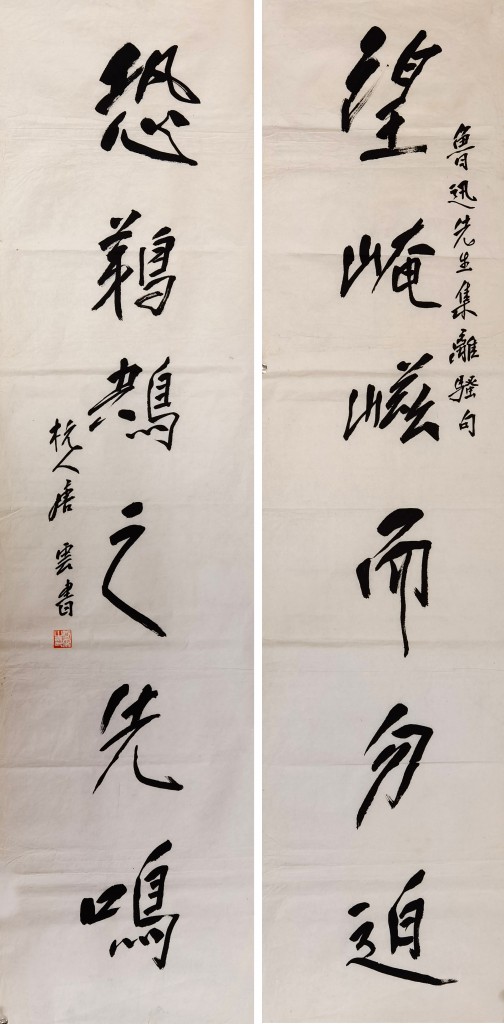 魯迅先生集離騷句
望崦嵫而勿迫
恐鵜鴂之先鳴
杭人唐雲書